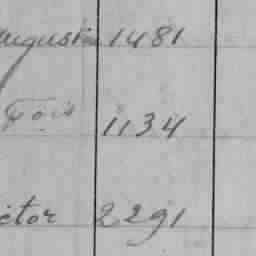 Augustin 1481
Fois 1134
ictor 2291